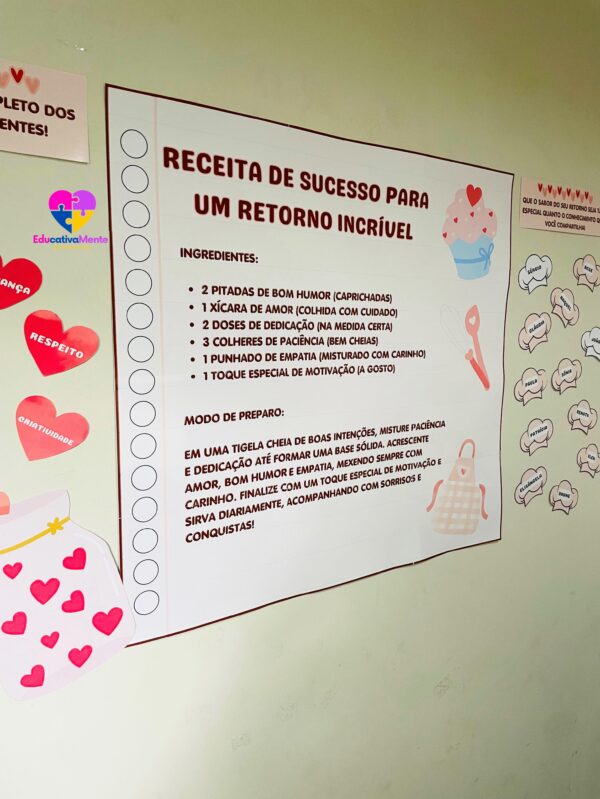 PLETO DOS
ENTES!
EducativaMente
ANÇA
RESPEITO
CRIATIVIDADE
RECEITA DE SUCESSO PARA
UM RETORNO INCRÍVEL
INGREDIENTES:
• 2 PITADAS DE BOM HUMOR (CAPRICHADAS)
• 1 XÍCARA DE AMOR (COLHIDA COM CUIDADO)
• 2 DOSES DE DEDICAÇÃO (NA MEDIDA CERTA)
• 3 COLHERES DE PACIÊNCIA (BEM CHEIAS)
• 1 PUNHADO DE EMPATIA (MISTURADO COM CARINHO)
• 1 TOQUE ESPECIAL DE MOTIVAÇÃO (A GOSTO)
MODO DE PREPARO:
EM UMA TIGELA CHEIA DE BOAS INTENÇÕES, MISTURE PACIÊNCIA
E DEDICAÇÃO ATÉ FORMAR UMA BASE SÓLIDA. ACRESCENTE
AMOR, BOM HUMOR E EMPATIA, MEXENDO SEMPRE COM
CARINHO. FINALIZE COM UM TOQUE ESPECIAL DE MOTIVAÇÃO E
SIRVA DIARIAMENTE, ACOMPANHANDO COM SORRISOS E
CONQUISTAS!
QUE O SABOR DO SEU RETORNO SEJA
ESPECIAL QUANTO O CONHECIMENTO
VOCÊ COMPARTILHA!
PAULA
SÔNIA
PATRÍCIA